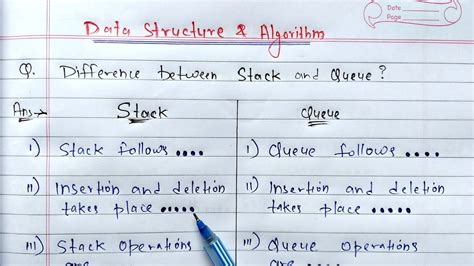 Date
Page
Data Structure & Algorithm
Q. Difference between Stack and Queue?
Ans→ Stack Queue
I) Stack follows .... I) Queue follows ....
II) Insertion and deletion II) Insertion and deletion
takes place ..... takes place .....
III) Stack operations III) Queue operations
are .... are ....